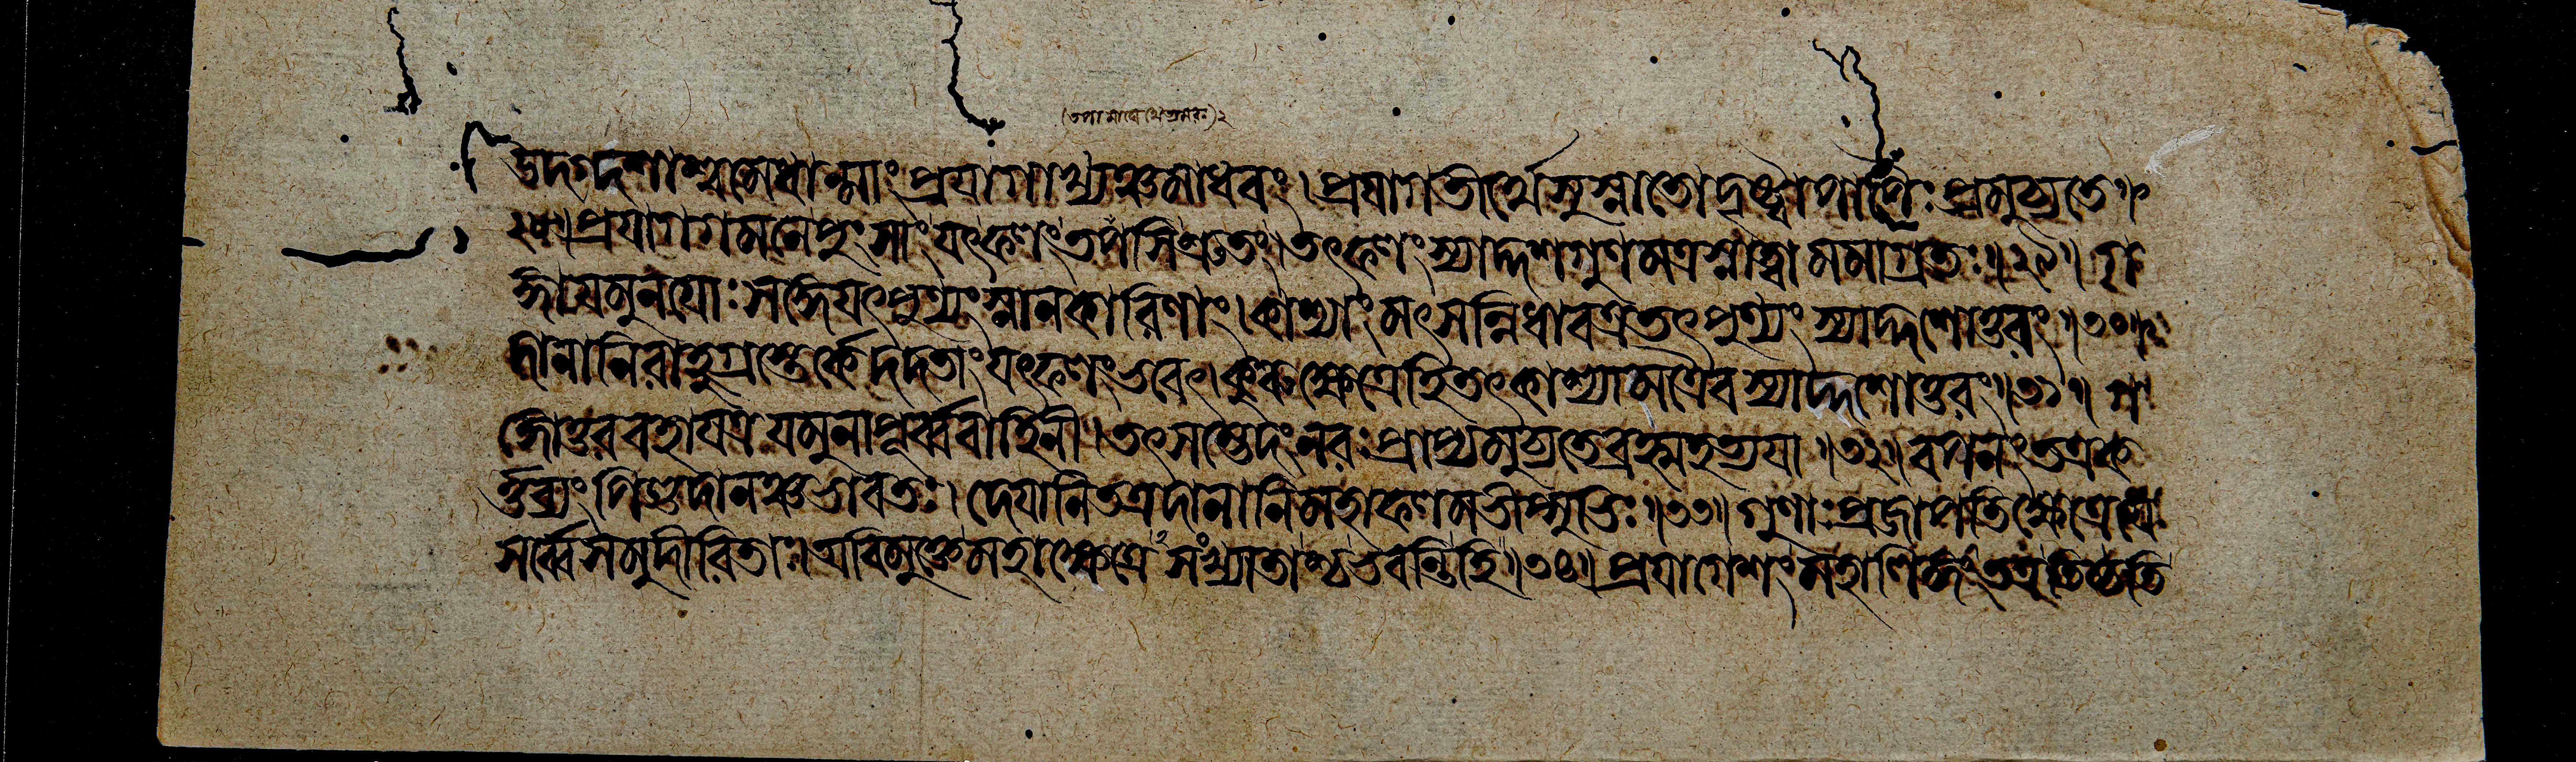 উদগ্দশাশ্বমেধান্মাং প্রয়াগাখ্যঞ্চমাধবং। প্রয়াগতীর্থেসুস্নাতোদৃষ্ট্বাপাপৈঃ প্রমুচ্যতে॥
২৮॥ প্রয়াগগমনে পুংসাং যৎফলং তপসিশ্রুতং। তৎফলং স্যাদ্দশগুণমত্রস্নাত্বা মমাগ্রতঃ॥২৯॥ গ
ঙ্গাযমুনয়োঃ সঙ্গেযৎপুণ্যং স্নানকারিণাং। কাশ্যাং মৎসন্নিধাবত্রতৎপুণ্যং স্যাদ্দশোত্তরং॥৩০॥
দানানিরাহুগ্রস্তের্কেদদতাং যৎফলং ভবেৎ। কুরুক্ষেত্রেহিতৎকাশ্যামত্রৈবস্যাদ্দশোত্তরং॥৩১॥ গ
ঙ্গোত্তরবহাযত্রযমুনাপূর্ব্ববাহিনী। তৎসম্ভেদং নরঃ প্রাপ্যমুচ্যতেব্রহ্মহত্যয়া॥৩২॥ বপনং তত্রক
র্ত্তব্যং পিণ্ডদানঞ্চভাবতঃ। দেয়ানিতত্রদানানিমহাফলমভীপ্সুভিঃ॥৩৩॥ গুণাঃ প্রজাপতিক্ষেত্রেযে
সর্ব্বেসমুদীরিতাঃ। অবিমুক্তেমহাক্ষেত্রে সংখ্যাতাশ্চভবন্তিহি॥৩৪॥ প্রয়াগেশং মহালিঙ্গং তত্রতিষ্ঠতি